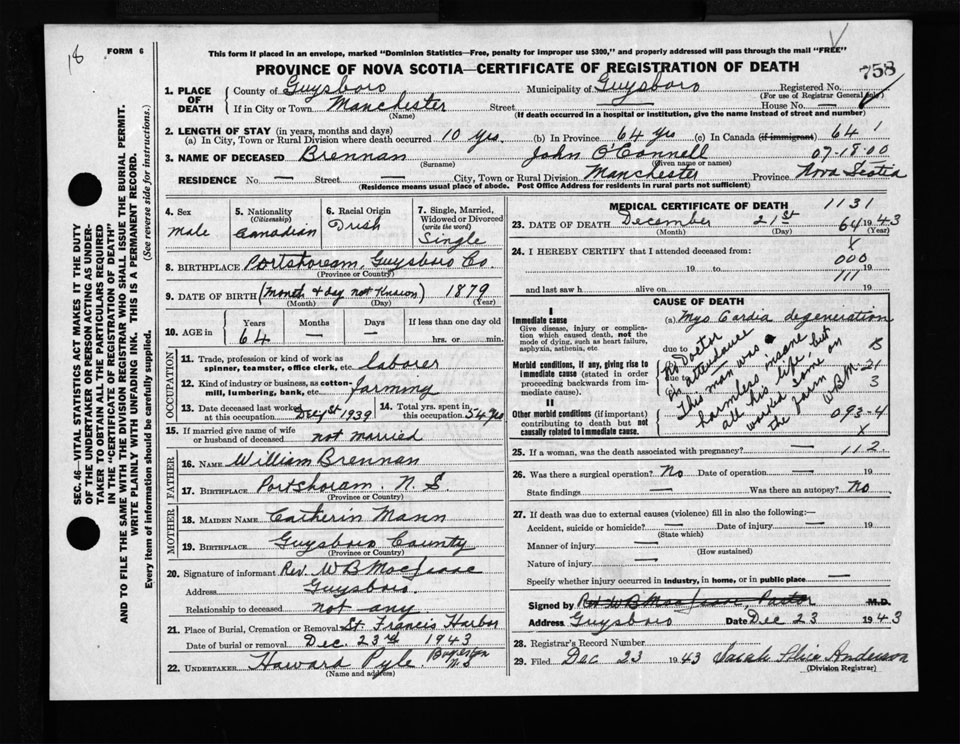 18
FORM 6
This form if placed in an envelope, marked "Dominion Statistics—Free, penalty for improper use $300," and properly addressed will pass through the mail "FREE"
PROVINCE OF NOVA SCOTIA—CERTIFICATE OF REGISTRATION OF DEATH
758
SEC. 46—VITAL STATISTICS ACT MAKES IT THE DUTY
OF THE UNDERTAKER OR PERSON ACTING AS UNDER-
TAKER TO OBTAIN ALL THE PARTICULARS REQUIRED
IN THE "CERTIFICATE OF REGISTRATION OF DEATH"
AND TO FILE THE SAME WITH THE DIVISION REGISTRAR WHO SHALL ISSUE THE BURIAL PERMIT.
WRITE PLAINLY WITH UNFADING INK. THIS IS A PERMANENT RECORD.
Every item of information should be carefully supplied. (See reverse side for instructions.)
1. PLACE OF DEATH
County of Guysboro Municipality of Guysboro Registered No.
(For use of Registrar General only)
If in City or Town Manchester Street — House No. —
(Name) (If death occurred in a hospital or institution, give the name instead of street and number)
2. LENGTH OF STAY (in years, months and days)
(a) In City, Town or Rural Division where death occurred 10 yrs. (b) In Province 64 yrs (c) In Canada (if immigrant) 64 1
3. NAME OF DECEASED Brennan John O'Connell 07-18-00
(Surname) (Given name or names)
RESIDENCE No. — Street — City, Town or Rural Division Manchester Province Nova Scotia
(Residence means usual place of abode. Post Office Address for residents in rural parts not sufficient)
4. Sex
male
5. Nationality
(Citizenship)
Canadian
6. Racial Origin
Irish
7. Single, Married,
Widowed or Divorced
(write the word)
Single
8. BIRTHPLACE Portshoream, Guysboro Co.
(Province or Country)
9. DATE OF BIRTH (Month & day not Known) 1879
(Month) (Day) (Year)
10. AGE in
Years Months Days If less than one day old
64 — — hrs. or min.
OCCUPATION
11. Trade, profession or kind of work as
spinner, teamster, office clerk, etc. laborer
12. Kind of industry or business, as cotton-
mill, lumbering, bank, etc. farming
13. Date deceased last worked
at this occupation 1939
14. Total yrs. spent in
this occupation
15. If married give name of wife
or husband of deceased not married
FATHER
16. NAME William Brennan
17. BIRTHPLACE Portshoram. N.S
(Province or Country)
MOTHER
18. MAIDEN NAME Catherin Mann
19. BIRTHPLACE Guysboro County
(Province or Country)
20. Signature of informant Rev. W B MacIsaac
Address Guysboro
Relationship to deceased not any
21. Place of Burial, Cremation or Removal St. Francis Harbor
Date of burial or removal Dec. 23rd 1943
22. UNDERTAKER Howard Pyle Boylston N.S
(Name and address)
MEDICAL CERTIFICATE OF DEATH 1131
23. DATE OF DEATH December 21st 64 1943
(Month) (Day) (Year)
24. I HEREBY CERTIFY that I attended deceased from:
000
19 to 19
111
and last saw h alive on 19
CAUSE OF DEATH
I
Immediate cause (a) Myo Cardia degeneration
Give disease, injury or complica-
tion which caused death, not the
mode of dying, such as heart failure,
asphyxia, asthenia, etc.
due to
Morbid conditions, if any, giving rise to
immediate cause (stated in order
proceeding backwards from im-
mediate cause).
due to
II
Other morbid conditions (if important)
contributing to death but not
causally related to immediate cause.
No Doctor
in attendance
This man was a
harmless insane
all his life, but
worked some on
the farm W.B.M.
B
21
3
093-4
25. If a woman, was the death associated with pregnancy? 112
26. Was there a surgical operation? No Date of operation — 19
State findings — Was there an autopsy? No.
27. If death was due to external causes (violence) fill in also the following:—
Accident, suicide or homicide? — Date of injury — 19
(State which)
Manner of injury —
(How sustained)
Nature of injury —
Specify whether injury occurred in industry, in home, or in public place —
Signed by Rev W B MacIsaac, Pastor M.D.
Address Guysboro Date Dec 23 1943
28. Registrar's Record Number
29. Filed Dec 23 1943 Sarah Alice Anderson
(Division Registrar)